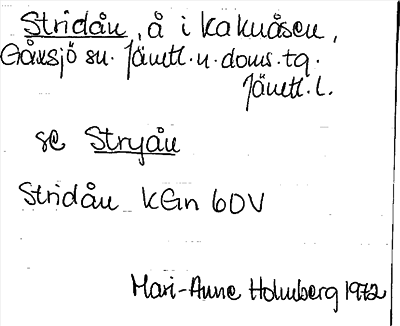 Stridån, å i Kakuåsen,
Gåxsjö sn. Jämtl. n. doms. tg.
Jämtl. l.
se Stryån
Stridån KGn 60V
Mari-Anne Holmberg 1972